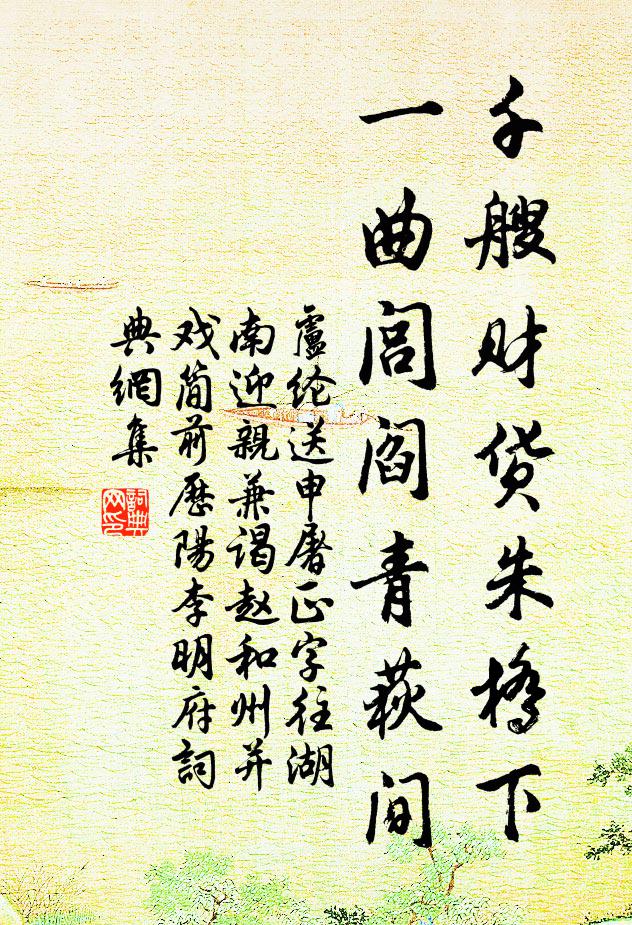 千艘财货朱桥下
一曲闾阎青荻间
盧纶送申屠正字往湖
南迎親兼谒赵和州并
戏简前歷陽李明府詞
典網集
詞典网印